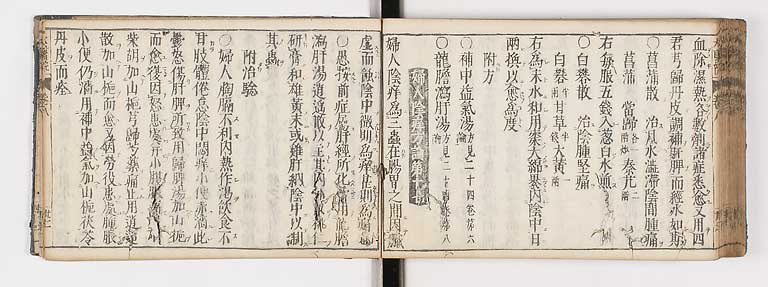 血除濕熱各數劑諸症悉愈又用四
君芎歸丹皮調補肝脾而經水如期
○菖蒲散 治月水澁滯陰間腫痛
菖蒲 當歸各 秦艽二
右每服五錢入葱白水煎
○白礬散 治陰腫堅痛
白礬 甘草半 大黃
右為末水和用棗大綿裹內陰中日
兩換以愈為度
附方
○補中益氣湯方見二十四卷第六
○龍膽瀉肝湯方見二十四卷第八
婦人陰痒方論第十四
婦人陰痒為三蟲在腸胃之間因臟
虛而蝕陰中微則為痒甚則為痛
○愚按前症屬肝經所化當用龍膽
瀉肝湯逍遙散以主其內外以桃仁
研膏和雄黃末或雞肝納陰中以制
其蟲
附治驗
○婦人胸膈不利內熱作渴飲食不
甘肢體倦怠陰中悶痒小便赤澁此
鬱怒傷肝脾所致用歸脾湯加山梔
而愈後因怒患處併小腹脹痛
柴胡加山梔芎歸芍藥痛止用逍遙
散加山梔而愈又因勞役患處腫脹
小便仍澁用補中益氣加山梔茯苓
丹皮而痊